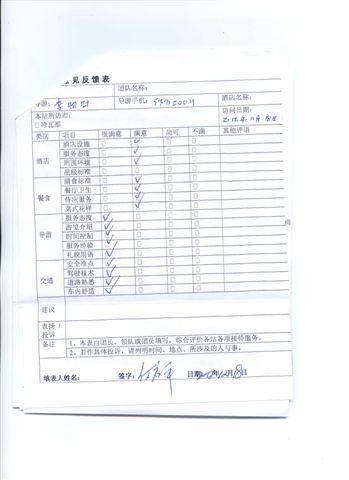 见反馈表
团队名称:
导游:
导游手机:
酒店名称:
本站所访市:
访问日期:
□哈瓦那
类别 项目 很满意 满意 尚可 不满 其他评语
酒店 酒店设施 □ □ □ □
服务态度 □ □ □ □
周围环境 □ □ □ □
星级标准 □ □ □ □
餐食 膳食标准 □ □ □ □
餐厅卫生 □ □ □ □
侍应服务 □ □ □ □
菜式花样 □ □ □ □
导游 服务态度 □ □ □ □
游览介绍 □ □ □ □
时间控制 □ □ □ □
服务经验 □ □ □ □
礼貌用语 □ □ □ □
交通 安全准点 □ □ □ □
驾驶技术 □ □ □ □
道路熟悉 □ □ □ □
车内舒适 □ □ □ □
建议
表扬/
投诉
备注 1、本表由团长、领队或团员填写，综合评价各站各项接待服务。
2、若作具体投诉，请列明时间、地点、所涉及的人与事。
填表人姓名: 签字: 日期: 年12月18日